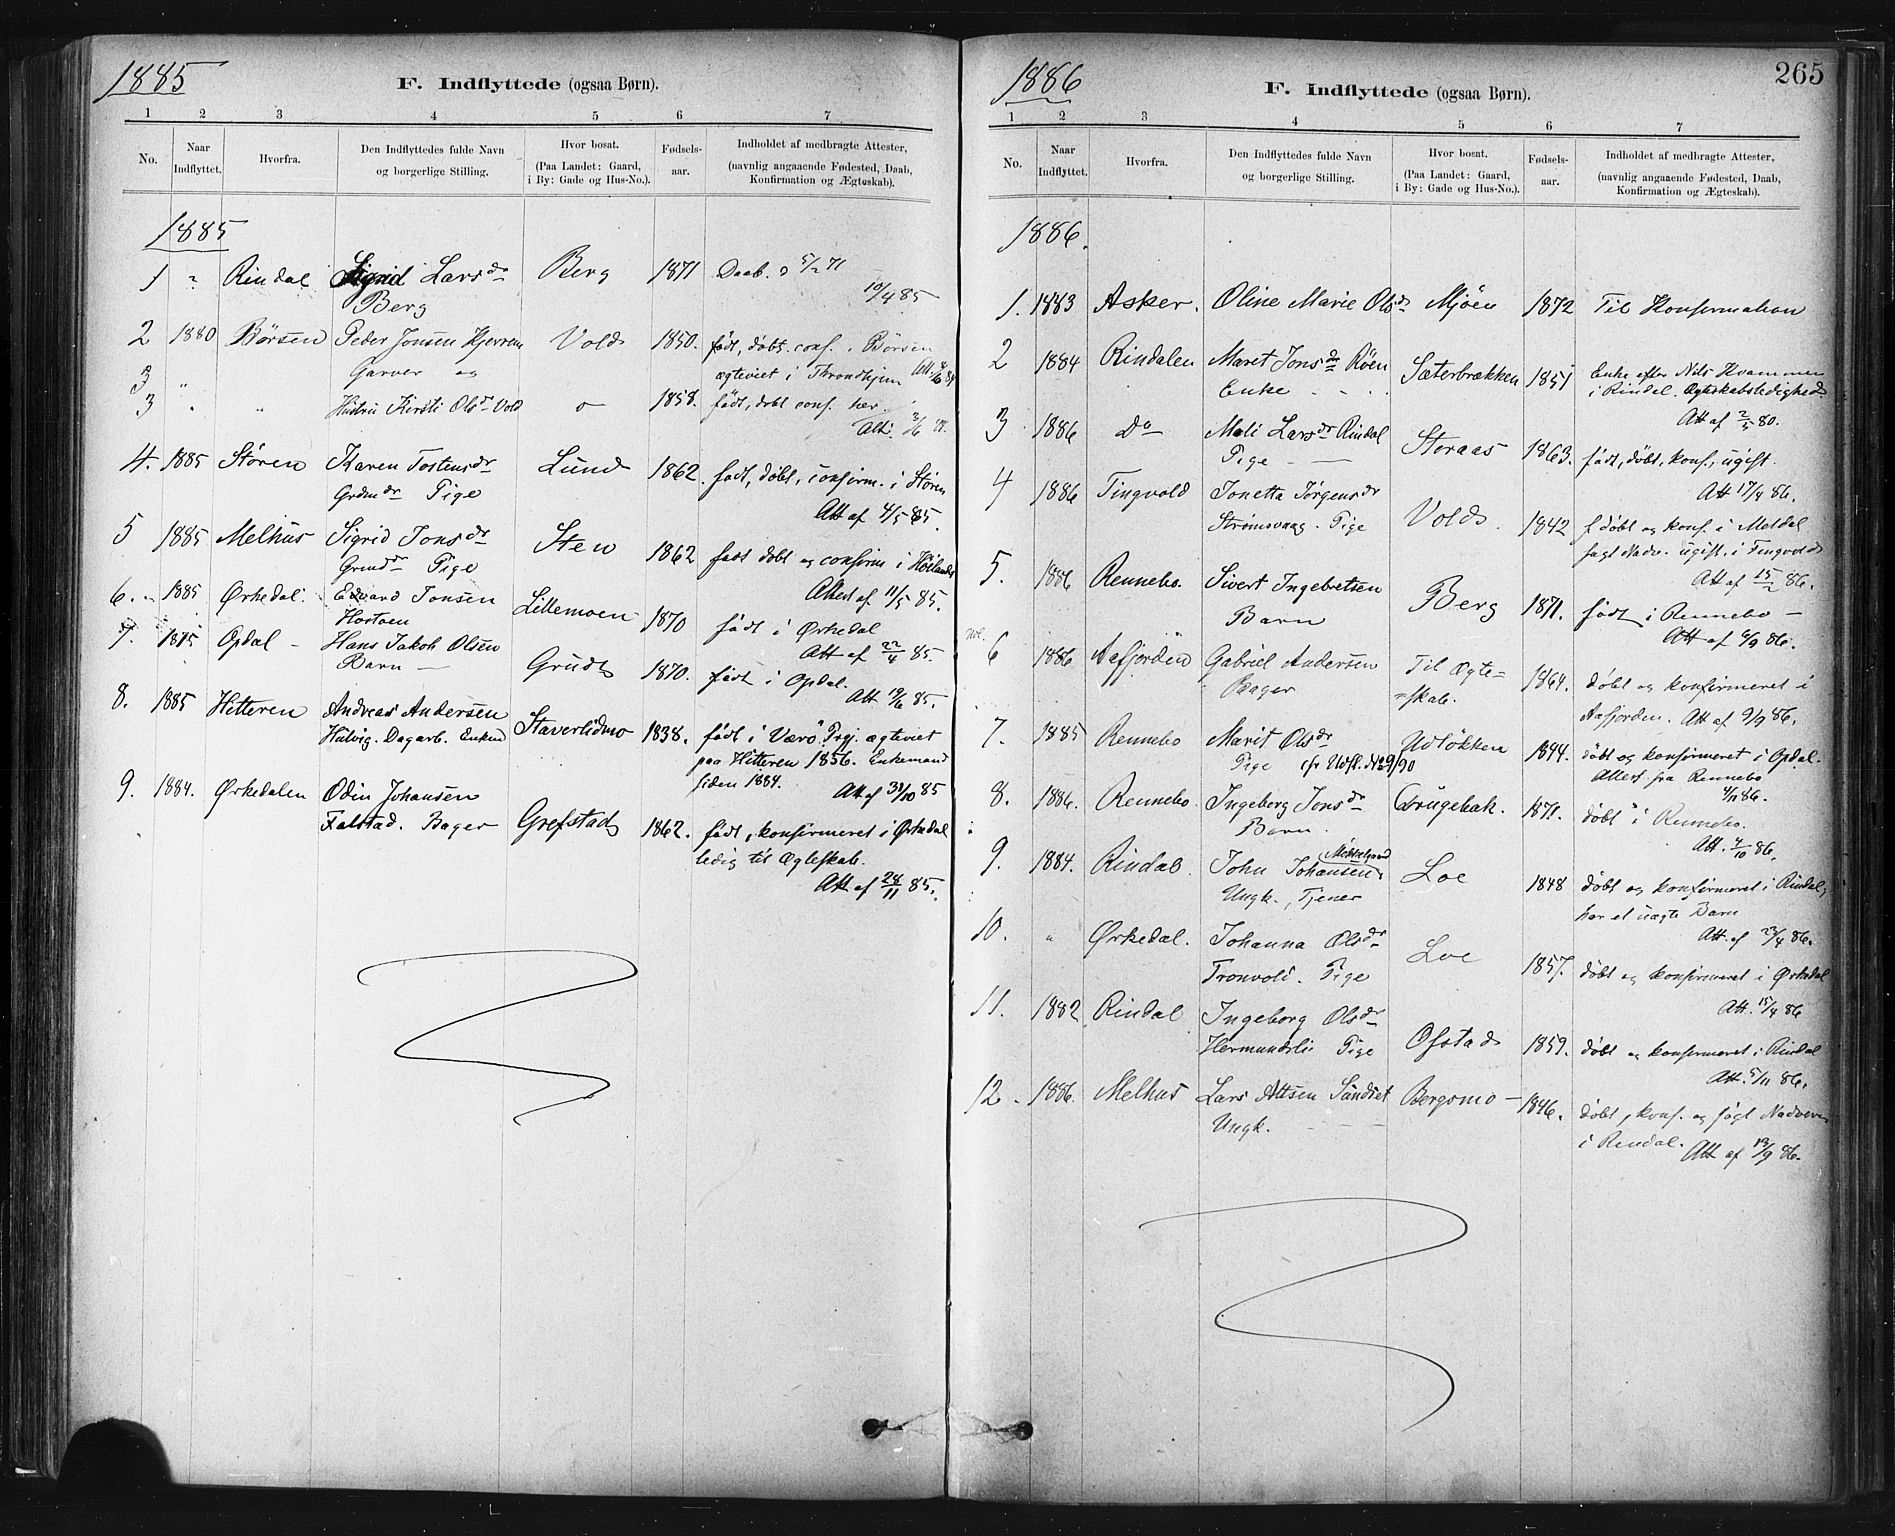 1885
F. Indflyttede (ogsaa Børn).
1 2 3 4 5 6 7
No. Naar Indflyttet. Hvorfra. Den Indflyttedes fulde Navn og borgerlige Stilling. Hvor bosat. (Paa Landet: Gaard, i By: Gade og Hus-No.). Fødsels-aar. Indholdet af medbragte Attester, (navnlig angaaende Fødested, Daab, Konfirmation og Ægteskab).
1885
1 " Rindal Sigrid Larsdr Berg 1871 Daab. 5/2 71
Berg 10/4 85
2 1880 Børsen Peder Jonsen Kjerrem Vold 1850. født, døbt. conf. i Børsen
Garver og ægteviet i Throndhjem Att.
3 "
3 " " Hustru Kirsti Olsdr Vold o 1858. født, døbt conf. her.
Att.
4. 1885 Støren Karen Tostensdr Lund 1862. født, døbt, confirm. i Støren
Grdmdr Pige Att af 4/5 85.
5 1885 Melhus Sigrid Jonsdr Sten 1862 født døbt og confirm i Høilandet
Grmdr Pige Attest af 11/5 85.
6. 1885 Ørkedal. Edvard Jonsen Lillemoen 1870 født i Ørkedal
Hostoen Att af 22/4 85.
7 1875 Opdal - Hans Jakob Olsen Grudt 1870. født i Opdal.
Barn — Att 19/6 85.
8. 1885 Hitteren Andreas Andersen Staverlidmo 1838. født i Værø Prgj. ægteviet
Hølvig. Dagarb. Enkem paa Hitteren 1856. Enkemand
siden 1884. Att af 31/10 85
9. 1884. Ørkedalen Odin Johansen Grefstad 1862. født, konfirmeret i Ørkedal
Falstad. Bager ledig til Ægteskab.
Att af 24/11 85.
1886
265
F. Indflyttede (ogsaa Børn).
1 2 3 4 5 6 7
No. Naar Indflyttet. Hvorfra. Den Indflyttedes fulde Navn og borgerlige Stilling. Hvor bosat. (Paa Landet: Gaard, i By: Gade og Hus-No.). Fødsels-aar. Indholdet af medbragte Attester, (navnlig angaaende Fødested, Daab, Konfirmation og Ægteskab).
1886.
1. 1883 Asker. Oline Marie Olsdr Mjøen 1872 Til Konfirmation
2 1884 Rindalen Maret Jonsdr Røen Sæterbrækken 1851 Enke efter Nils Hvammen
Enke - - - i Rindal. Ægteskabsledighed
Att af 2/5 80.
3 1886 Do Mali Larsdr Rindal Storaas 1863. født, døbt, konf., ugift.
Pige — Att 17/4 86.
4 1886 Tingvold Jonetta Jørgensdr Vold. 1842 f døbt og konf. i Meldal
Strømsvaag. Pige søgt Nadv. ugift. i Tingvold
Att af 15/2 86.
5. 1886 Rennebo. Sivert Ingebretsen Berg 1871. født i Rennebo —
Barn Att af 6/9 86.
6 1886 Aafjorden Gabriel Andersen Til Ægte= 1864. døbt og konfirmeret i
Bager =skab. Aafjorden. Att af 9/9 86.
7. 1885 Rennebo Marit Olsdr Udløkken 1844. døbt og konfirmeret i Opdal.
Pige cfr Udfl. No 9/90 Attest fra Rennebo
4/11 86.
8. 1886. Rennebo. Ingeborg Jonsdr Grugebak. 1871. døbt i Rennebo.
Barn. Att. 4/10 86.
9. 1884. Rindal. John Johansen Loe 1848 døbt og konfirmeret i Rindal,
Ungk., Tjener har et uægte Barn
Att. af 23/4 86.
10. " Ørkedal. Johanna Olsdr Loe 1857. døbt og konfirmeret i Ørkedal
Tronvold. Pige Att. 15/4 86
11. 1882 Rindal Ingeborg Olsdr Ofstad 1859. døbt og konfirmeret i Rindal
Hermundslie Pige Att. 5/11 86.
12. 1886. Melhus Lars Altsen Sundset Bergsmo — 1846. døbt, konf. og søgt Nadveren
Ungk. - - - i Rindal. Att af 13/9 86.